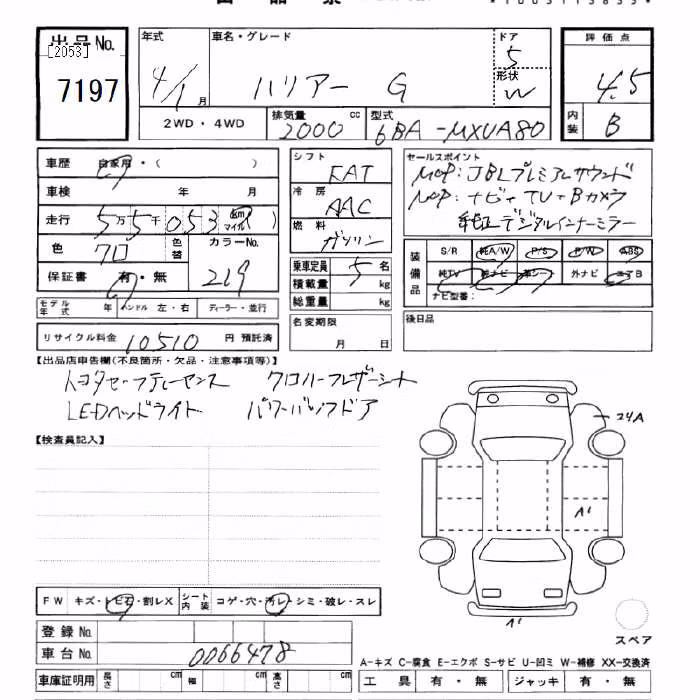 出品No. 年式 車名・グレード ドア 評価点
[2053] 5
7197 4/1月 ハリアー G 形状 W 4.5
2WD・4WD 排気量 2000 cc 型式 6BA-MXUA80 内装 B
車歴 自家用・( ) シフト FAT セールスポイント
車検 年 月 冷房 AAC MOP:JBLプレミアムサウンド
走行 5万5千053 km マイル ) 燃料 ガソリン MOP:ナビ+TV+Bカメラ
純正デジタルインナーミラー
色 クロ 色替 カラーNo. 219 乗車定員 5名 装備品 S/R 純A/W P/S P/W ABS
保証書 有・無 積載量 kg 純TV 純ナビ 革シート 外ナビ エアB
総重量 kg ナビ型番:
モデル年式 年 ハンドル 左・右 ディーラー・並行 名変期限 月 日 後日品
リサイクル料金 10510 円 預託済
【出品店申告欄(不良箇所・欠品・注意事項等)】
トヨタセーフティーセンス クロハーフレザーシート
LEDヘッドライト パワーバックドア
24A
【検査員記入】
A1
FW キズ・トビ石・割レX シート内装 コゲ・穴・汚レ・シミ・破レ・スレ
A1
登録No.
スペア
車台No. 0066478
A-キズ C-腐食 E-エクボ S-サビ U-凹ミ W-補修 XX-交換済
車庫証明用 長さ cm 幅 cm 高さ cm 工具 有・無 ジャッキ 有・無